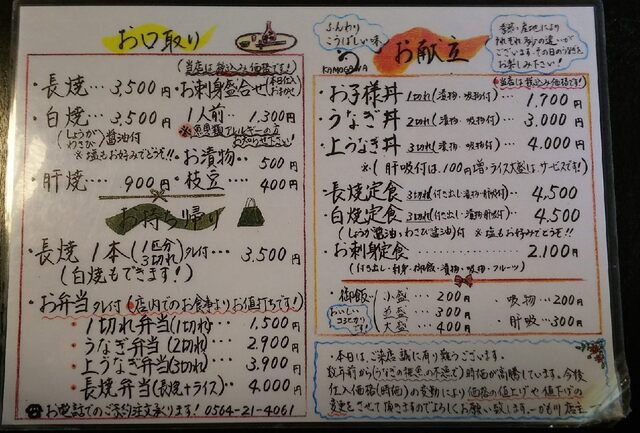 お口取り
(当店は税込み価格です!)
・長焼 … 3,500円
・白焼 … 3,500円
(しょうが わさび) 醤油付
※塩もお好みでどうぞ!!
・肝焼 900円
・お刺身盛合せ (本日仕入 おまかせ)
1人前 … 1,300円
※魚更類アレルギーの方
お知らせ下さい!
・お漬物 … 500円
・枝豆 … 400円
お持ち帰り
・長焼 1本 (1匹分 3切れ) タレ付 … 3,500円
(白焼もできます!)
・お弁当 タレ付 (店内でのお食事よりお値打ちです!)
・1切れ弁当(1切れ)… 1,500円
・うなぎ弁当(2切れ)… 2,900円
・上うなぎ弁当(3切れ) 3,900円
・長焼弁当(長焼+ライス)… 4,000円
☎お電話でのご予約注文承ります! 0564-21-4061
ふんわり
こうばしい味
KAMOGAWA
お献立
季節・産地により
それぞれ多少の違いが
ございます。その日のうなぎを
お楽しみ下さい!
(当店は税込み価格です!)
・お子様丼 1切れ(漬物・吸物付)… 1,700円
・うなぎ丼 2切れ(漬物・吸物付)… 3,000円
・上うなぎ丼 3切れ(漬物・吸物付)… 4,000円
※(肝吸付は、100円増・ライス大盛はサービスです!)
・長焼定食 3切れ(付き出し・漬物・肝吸付)… 4,500
・白焼定食 3切れ(付き出し・漬物・肝吸付)… 4,500
(しょうが醤油・わさび醤油)付 ※塩もお好みでどうぞ!!
・お刺身定食 … 2,100円
(付き出し・刺身・御飯・漬物・吸物・フルーツ)
おいしい
コシヒカリ
です!
・御飯 小盛 … 200円
並盛 … 300円
大盛 … 400円
・吸物 … 200円
・肝吸 … 300円
・本日は、ご来店 誠に有り難うございます。
数年前から(うなぎの稚魚の不漁で)時価が高騰しています。今後
仕入価格(時価)の変動により価格の値上げや値下げの
変更をさせて頂きますのでよろしくお願い致します。―かもり 店主